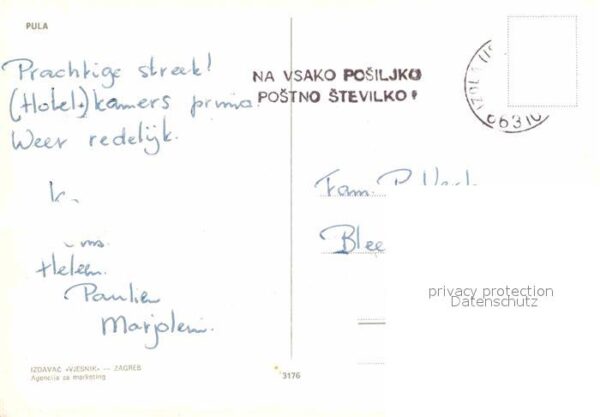 PULA
Prachtige streek!
(Hotel)kamers prima.
Weer redelijk.
NA VSAKO POŠILJKO
POŠTNO ŠTEVILKO!
66310
Fam.
Helen.
Paulien
Marjolein.
privacy protection
Datenschutz
IZDAVAČ «VJESNIK» — ZAGREB
Agencija za marketing
3176